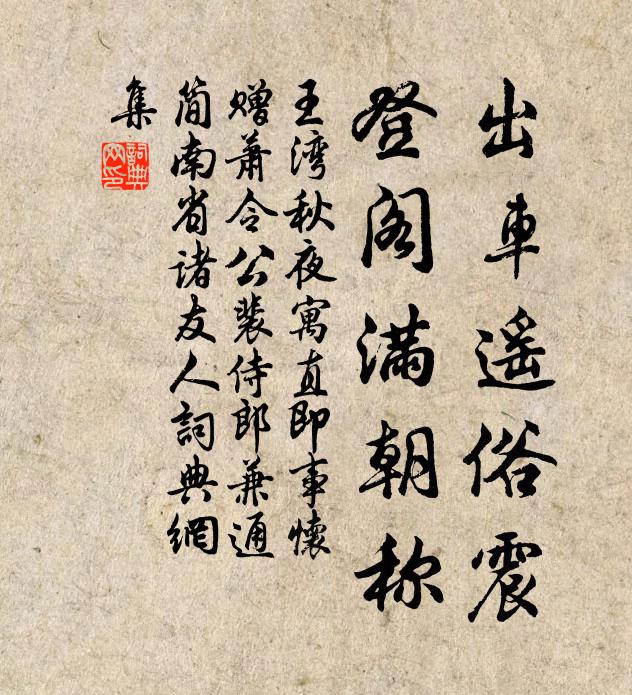 出車遥俗震
登阁滿朝称
王湾秋夜寓直即事懷
赠萧令公裴侍郎兼通
简南省诸友人詞典網
集
詞典
网印